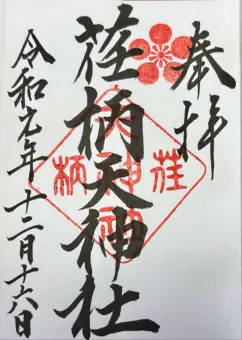 奉拝
荏柄天神社
令和元年十二月十六日
荏柄天神社